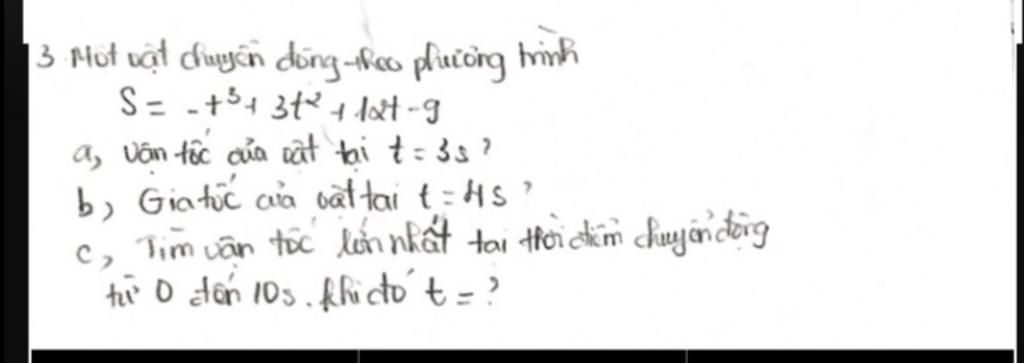 3. Một vật chuyển động theo phương trình
S = -t³ + 3t² + 12t - 9
a, Vận tốc của vật tại t = 3s?
b) Gia tốc của vật tại t = 4s?
c, Tìm vận tốc lớn nhất tại thời điểm chuyển động
từ 0 đến 10s. Khi đó t = ?